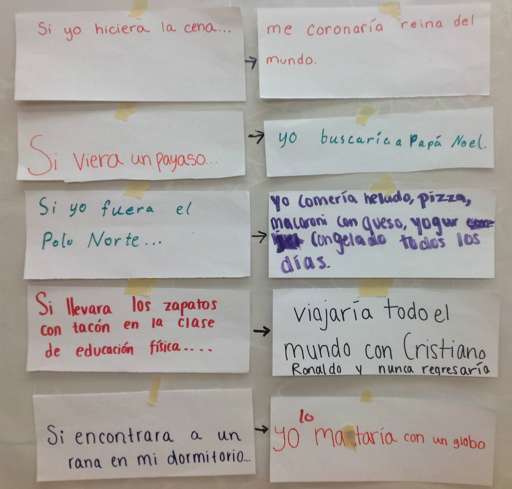 Si yo hiciera la cena...
me coronaría reina del
mundo.
Si viera un payaso...
yo buscaría a Papá Noel.
Si yo fuera el
Polo Norte...
Yo comería helado, pizza,
macaroni con queso, yogur
congelado todos los
días.
Si llevara los zapatos
con tacón en la clase
de educación física....
viajaría todo el
mundo con Cristiano
Ronaldo y nunca regresaría
Si encontrara a un
rana en mi dormitorio...
yo lo mataría con un globo